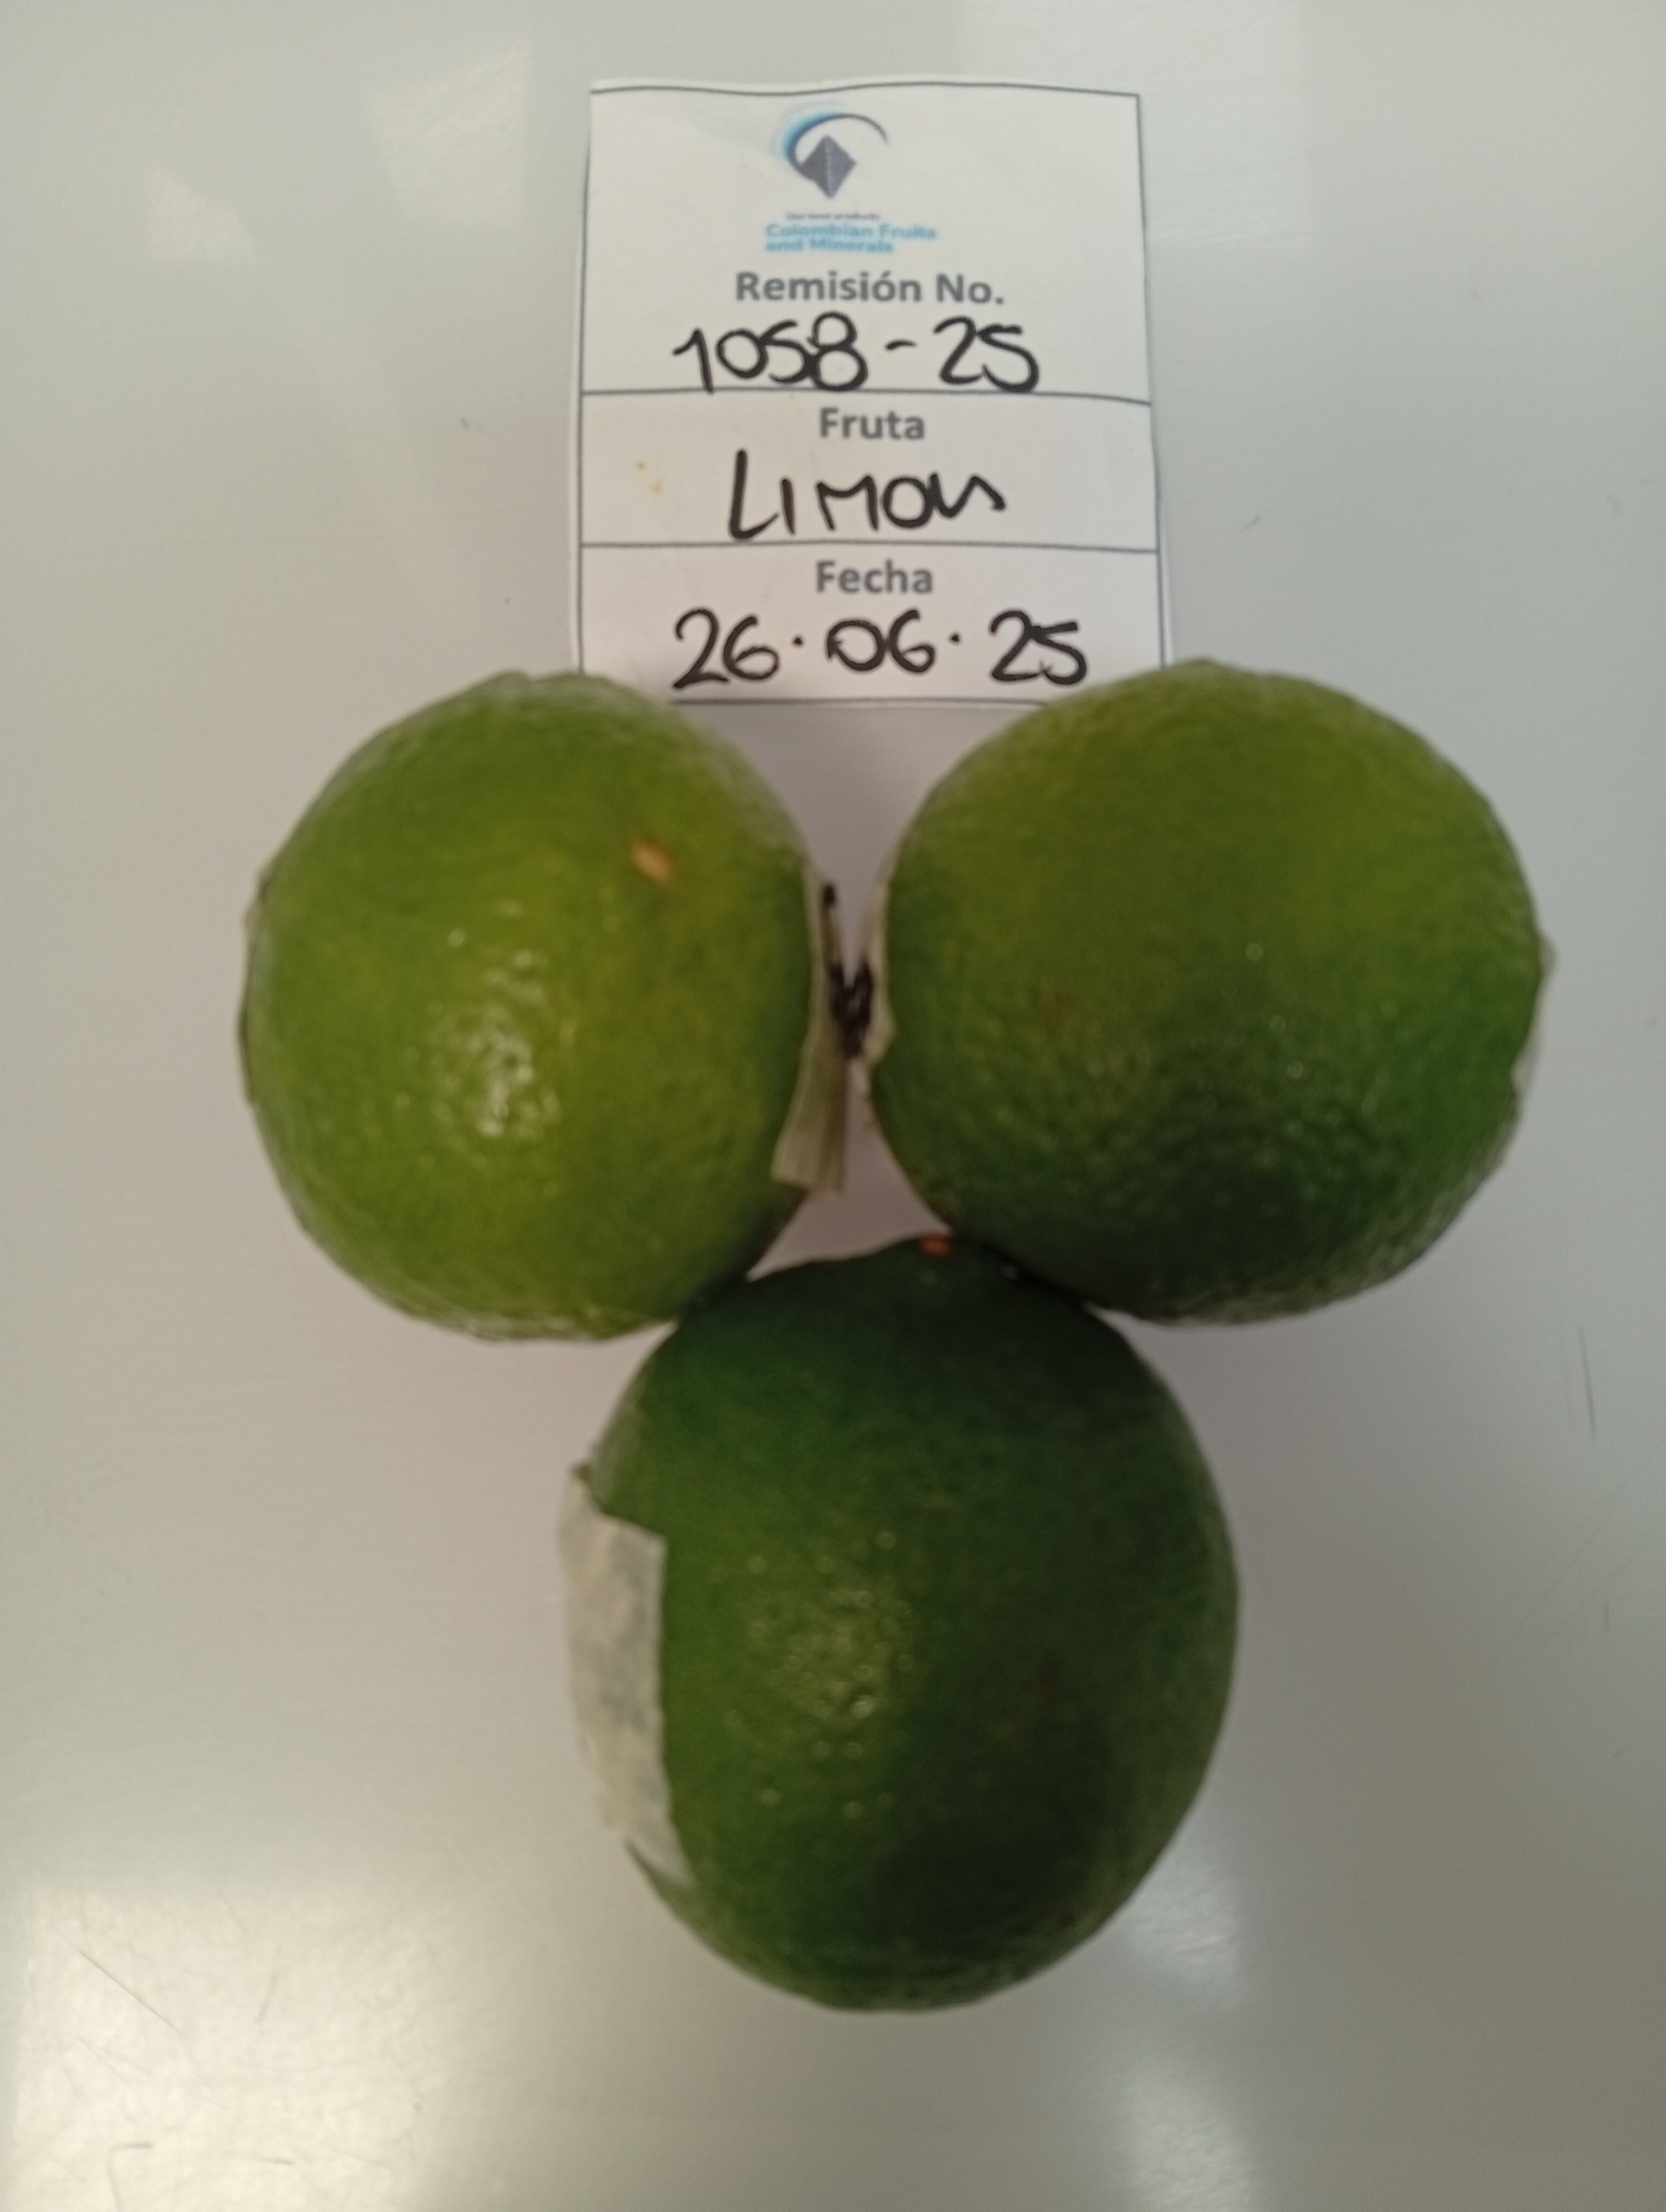 Colombian Fruits
and Minerals
Remisión No.
1058-25
Fruta
LIMON
Fecha
26·06·25